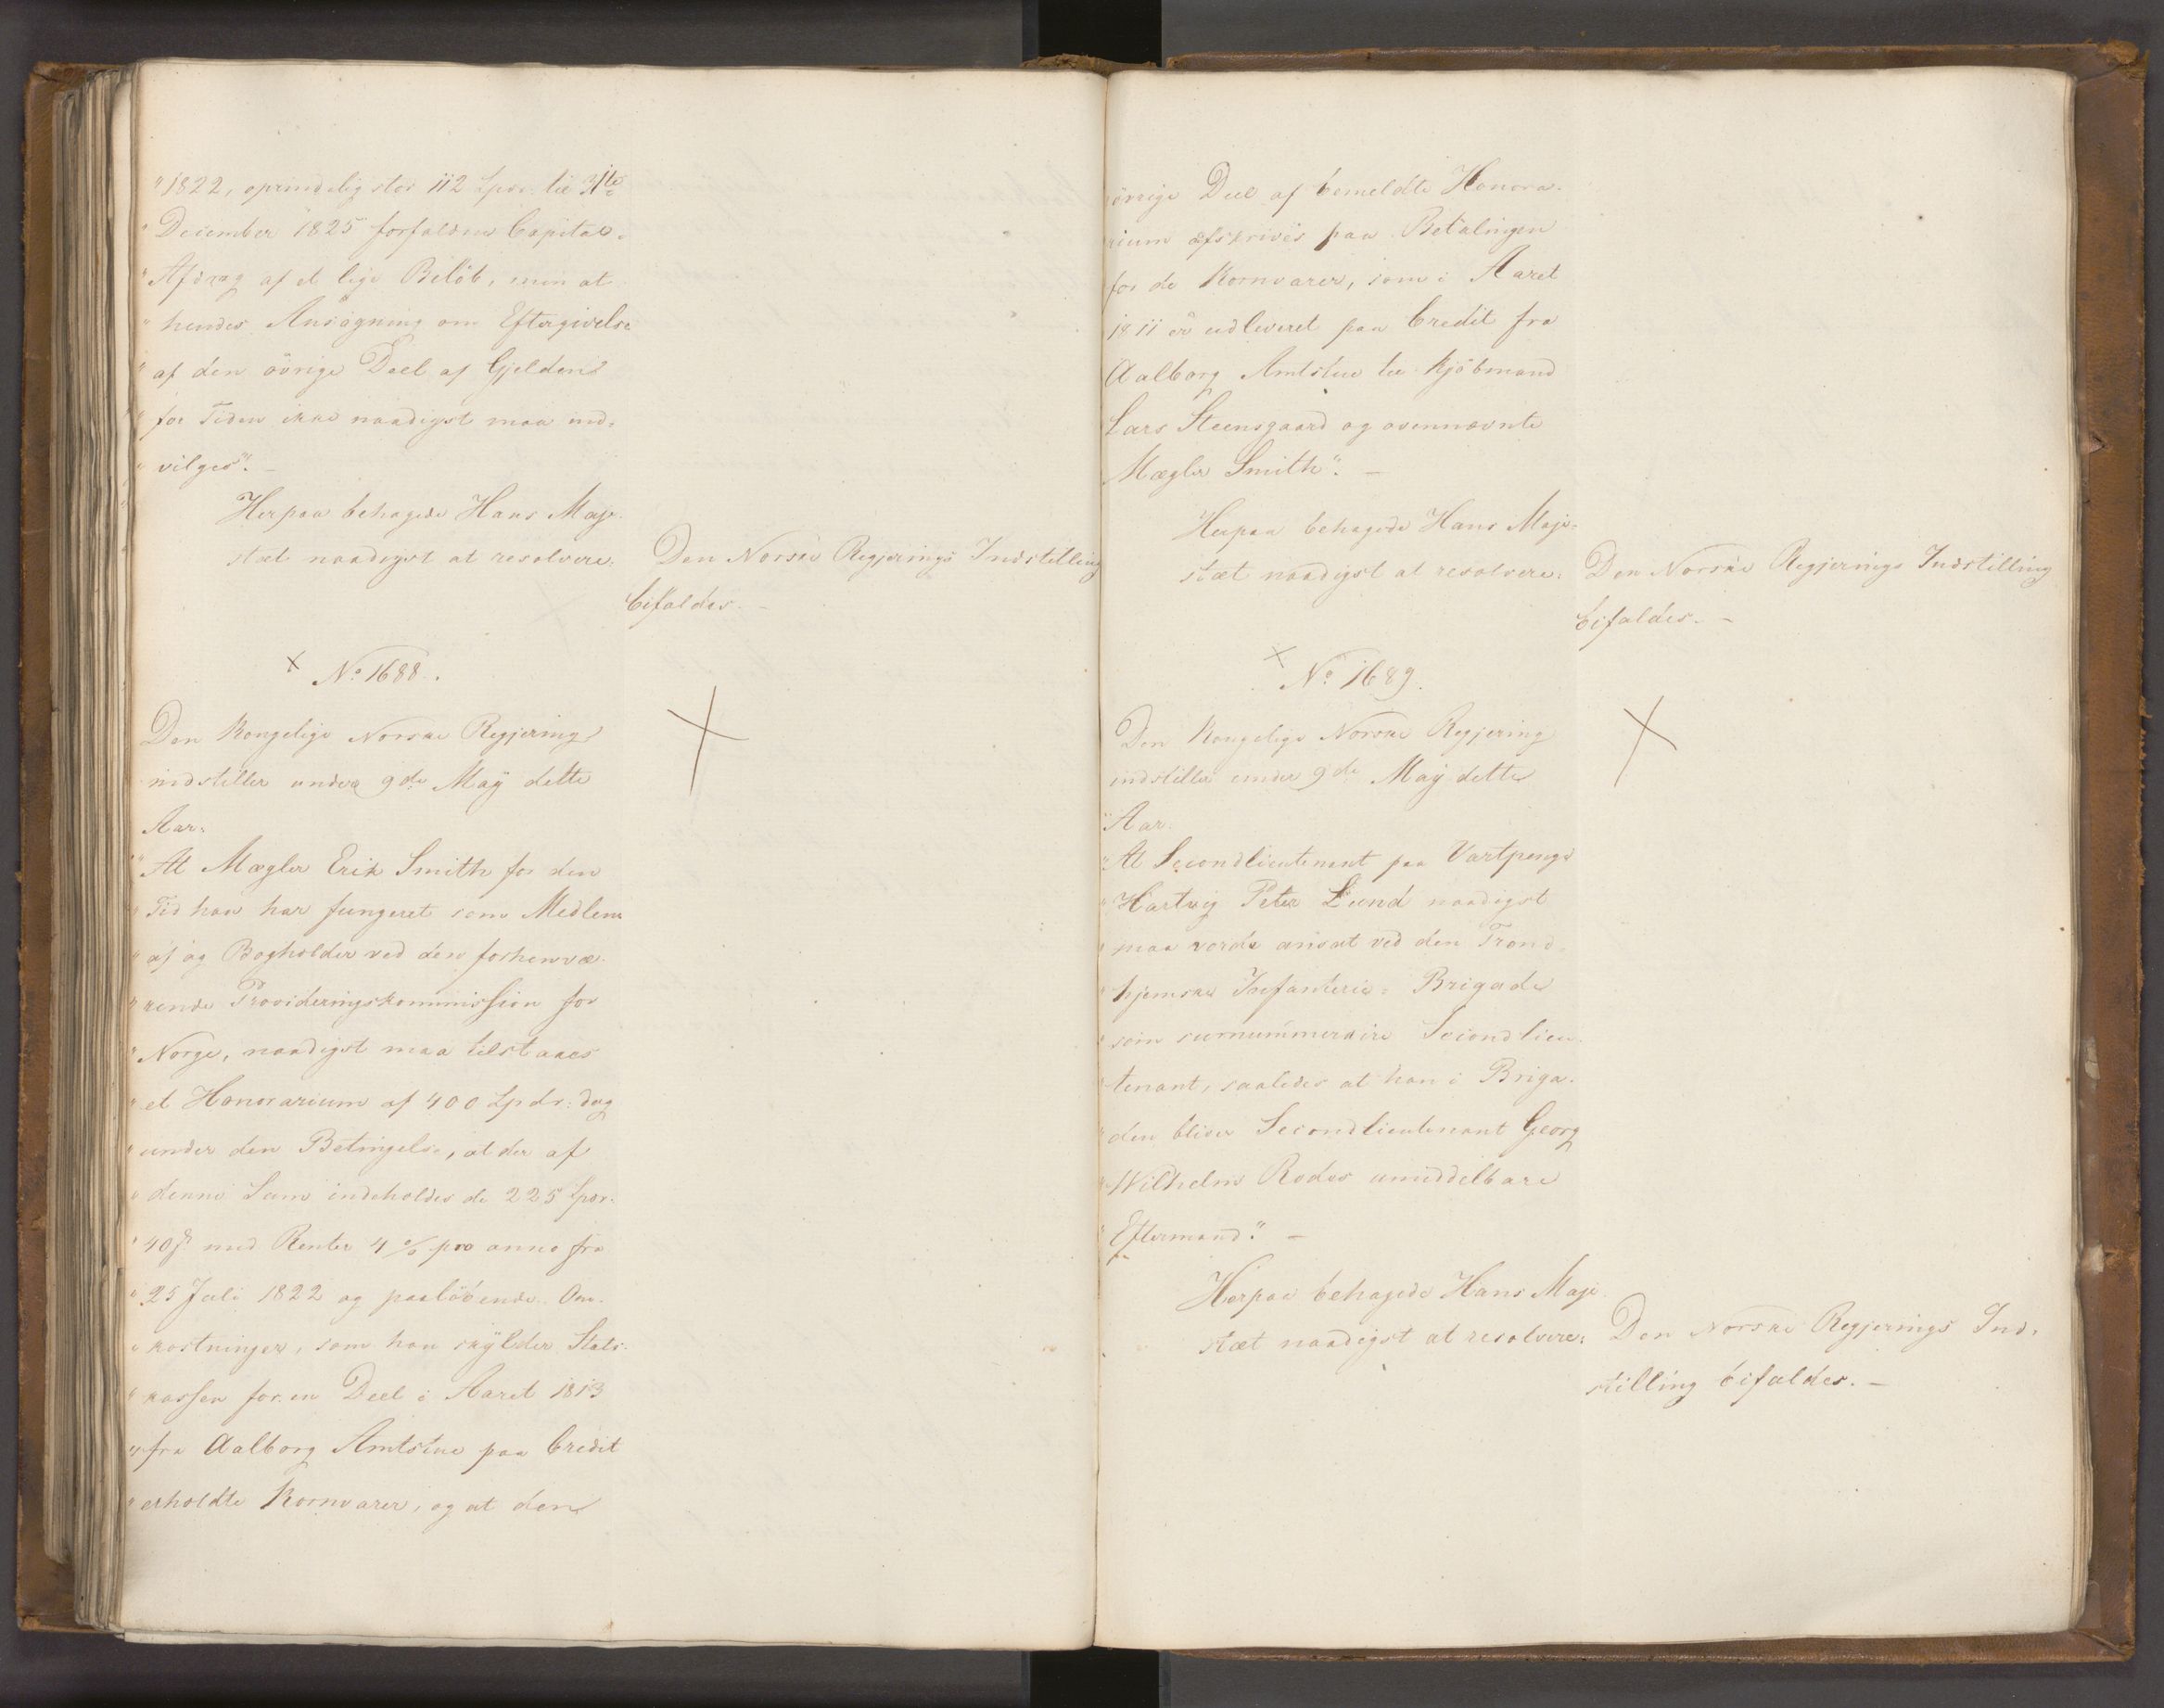 "1822, oprindelig stor 112 Spdr. til 31te
"December 1825 forfalden Capital-
"Afdrag af et lige Beløb, men at
"hendes Ansøgning om Eftergivelse
"af den øvrige Deel af Gjelden
"for Tiden ikke naadigst maa ind-
"vilges". –
Herpaa behagede Hans Maje-
stæt naadigst at resolvere:
Den Norske Regjerings Indstilling
bifaldes. –
× No 1688.
Den Kongelige Norske Regjering
indstiller under 9de May dette
Aar:
"At Mægler Erik Smith for den
"Tid han har fungeret som Medlem
"af og Bogholder ved den forhenvæ-
"rende Provideringskommission for
"Norge, naadigst maa tilstaaes
"et Honorarium af 400 Spdr: dog
"under den Betingelse, at der af
"denne Sum indeholdes de 225 Spdr.
"40 ß med Renter 4 % pro anno fra
"25 Juli 1822 og paaløbende Om-
"kostninger, som han skylder Stats-
"kassen for en Deel i Aaret 1813
"fra Aalborg Amtstue paa Credit
"erholdte Kornvarer, og at den
øvrige Deel af bemeldte Honora-
rium afskrives paa Betalingen
for de Kornvarer, som i Aaret
1811 er udleveret paa Credit fra
Aalborg Amtstue til Kjøbmand
Lars Steensgaard og ovennævnte
Mægler Smith". –
Herpaa behagede Hans Maje-
stæt naadigst at resolvere:
Den Norske Regjerings Indstilling
bifaldes. –
× No 1689.
Den Kongelige Norske Regjering
indstiller under 9de May dette
Aar.
"At Secondlieutenant paa Vartpenge
"Hartvig Peter Lund naadigst
"maa vorde ansat ved den Trond-
"hjemske Infanterie-Brigade
"som surnummeraire Secondlieu-
"tenant, saaledes at han i Briga-
"den bliver Secondlieutenant Georg
"Wilhelm Rodes umiddelbare
"Eftermand." –
Herpaa behagede Hans Maje-
stæt naadigst at resolvere:
Den Norske Regjerings Ind-
stilling bifaldes. –